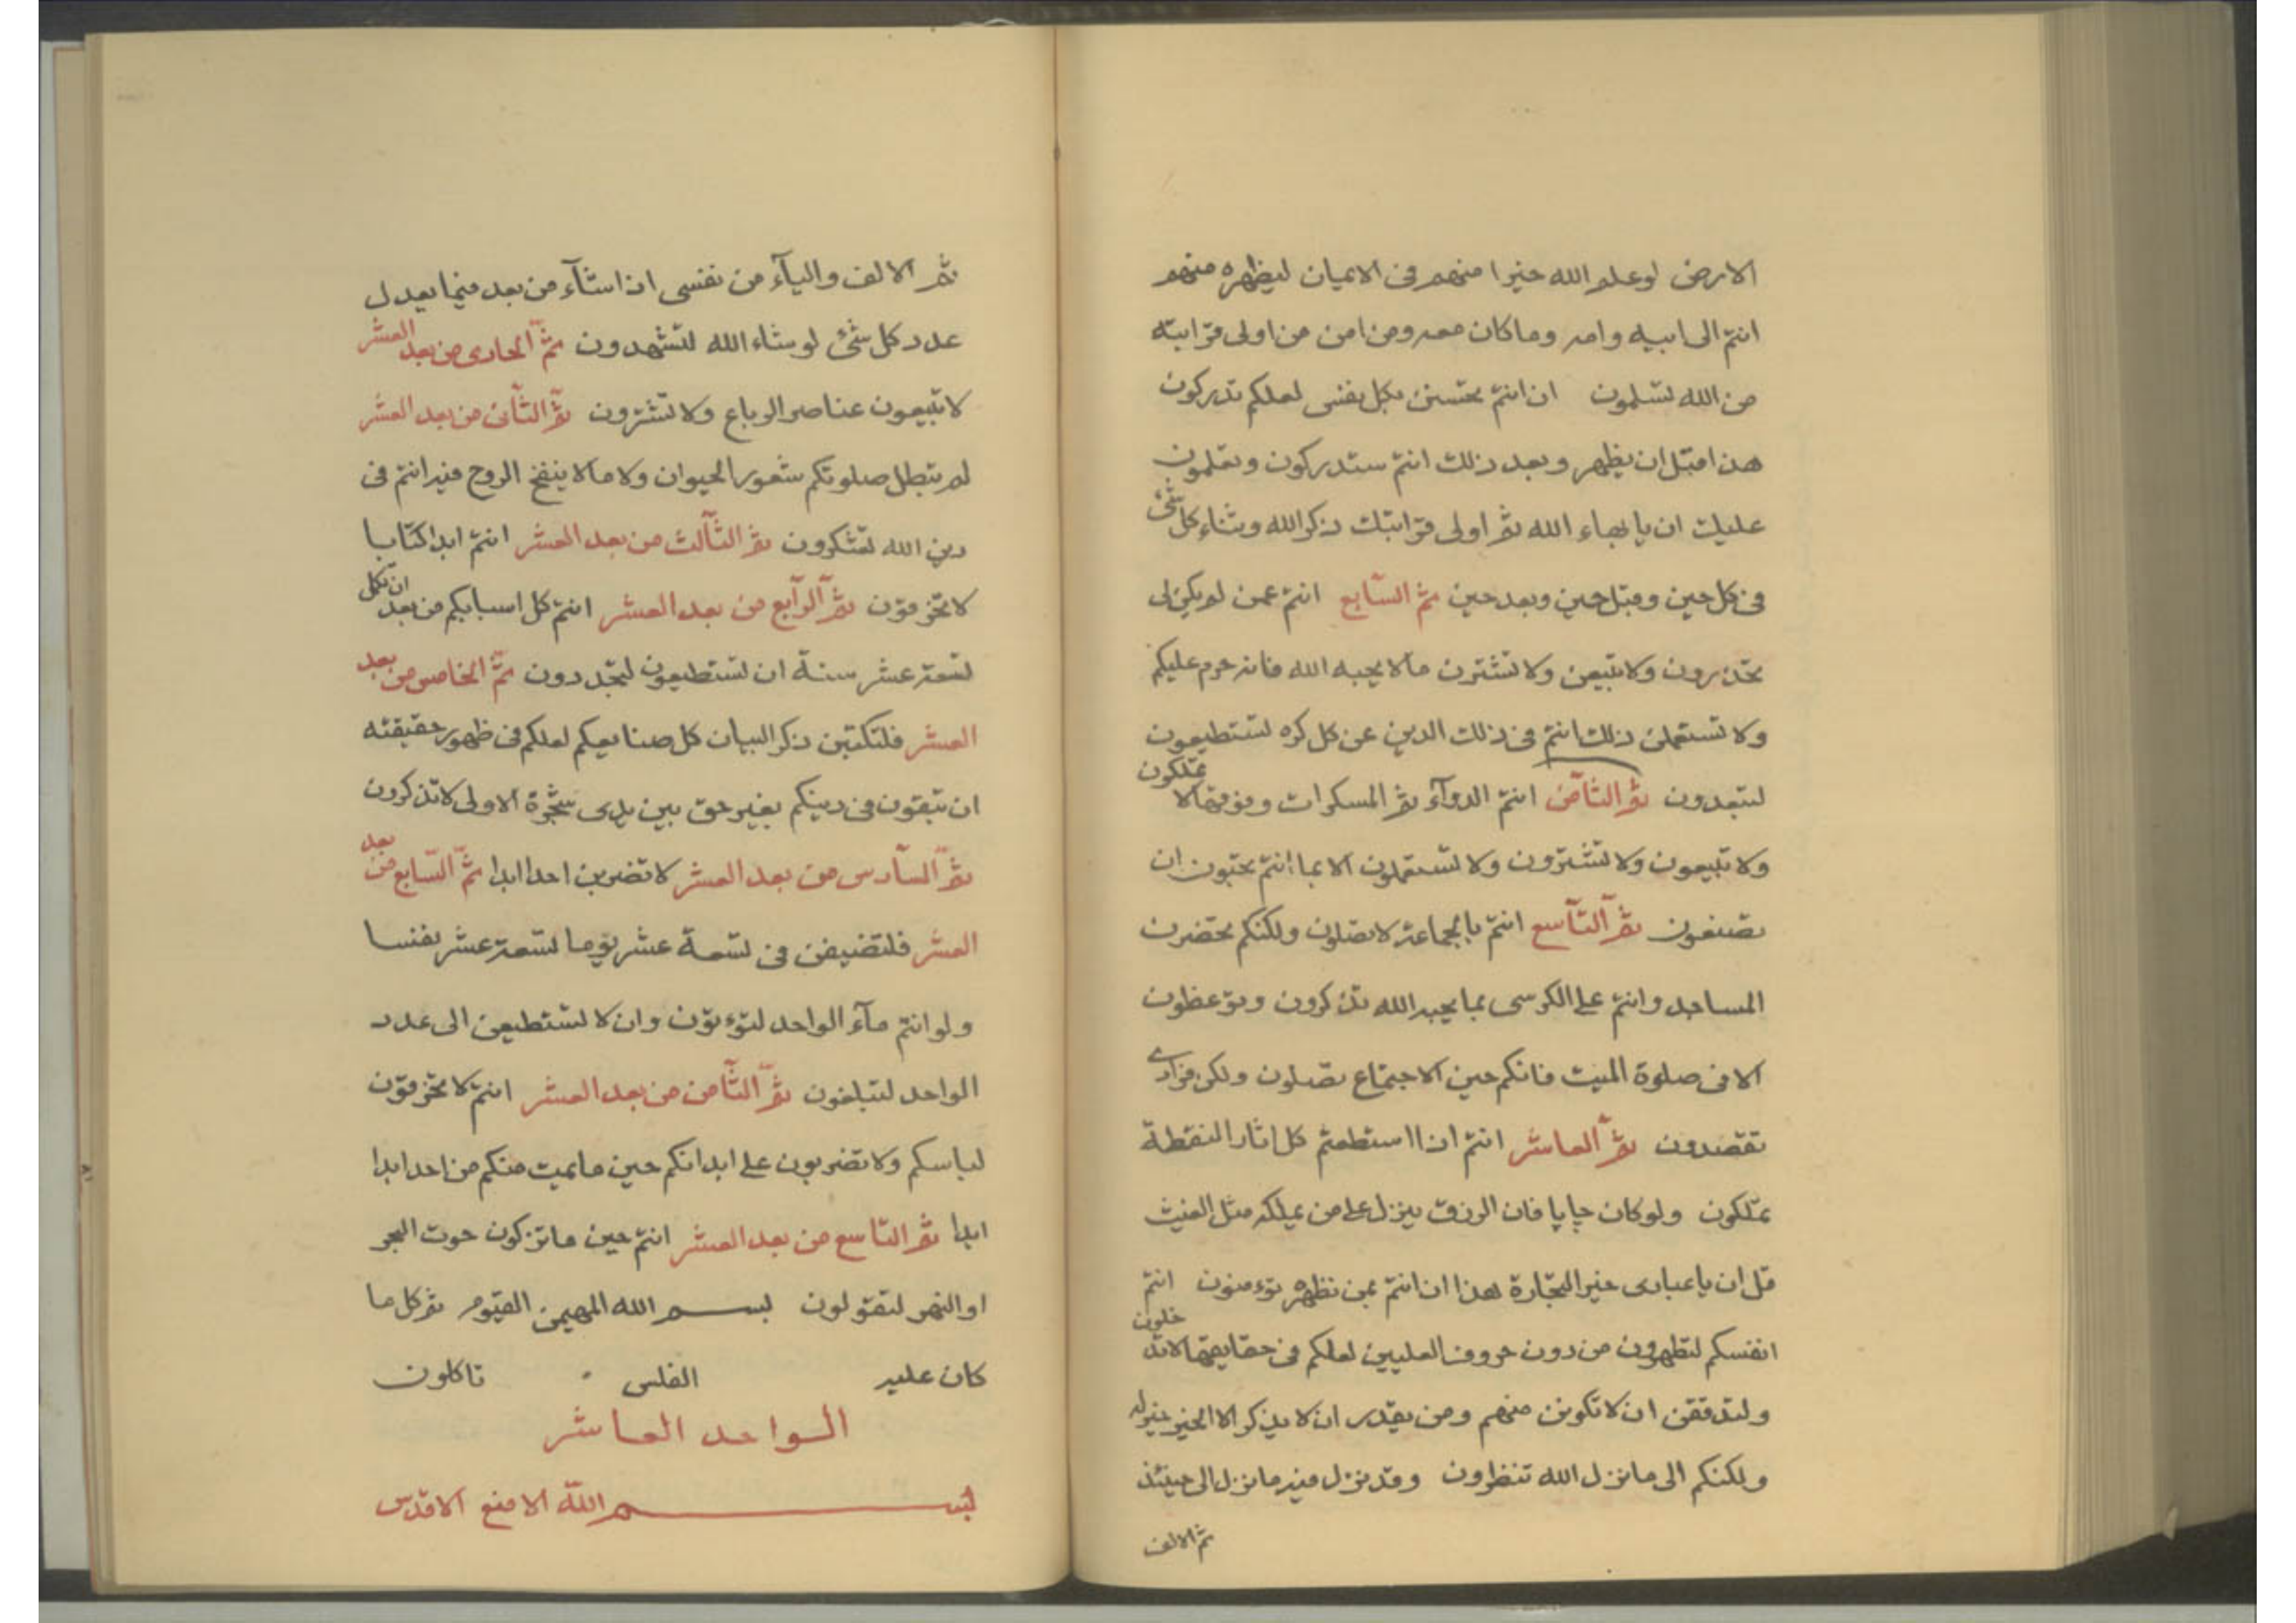 الارض لو علم الله خيرا منهم فى الايمان ليظهره منهم
انتم الى ابيه وامه وماكان معه ومن امن من اولى قرابته
من الله لتسلمون ان انتم تحسنن بكل نفس لعلكم تدركون
هذا قبل ان يظهر وبعد ذلك انتم ستدركون وتعلمون
عليك ان يا بهاء الله ثم اولى قرابتك ذكر الله وثناء كل شئ
فى كل حين وقبل حين وبعد حين ثم السابع انتم عمن لم يكن لى
تحذرون ولا تبيعن ولا تشترن ما لا يحبه الله فانه حرم عليكم
ولا تستعملن ذلك انتم فى ذلك الدين عن كل كره تستطيعون
لتبعدون ثم الثامن انتم الدوآء ثم المسكرات ونوعها لا تملكون
ولا تبيعون ولا تشترون ولا تستعملون الا بما انتم تحبون ان
تصنعون ثم التآسع انتم بالجماعة لا تصلون ولكنكم تحضرن
المساجد وانتم على الكرسى بما يحبه الله تذكرون وتوعظون
الا فى صلوة الميت فانكم حين الاجتماع تصلون ولكن فرادى
تقصدون ثم العاشر انتم ان استطعتم كل اثار النقطة
تملكون ولو كان چاپا فان الرزق ينزل على من يملكه مثل الغيث
قل ان يا عبادى خير التجارة هذا ان انتم بمن نظهره تؤمنون انتم
انفسكم لتطهرون من دون حروف العليين لعلكم فى حقايقها لا تدخلون
ولتدققن ان لا تكونن منهم ومن يقدر ان لا يذكر الا الخير خير له
ولكنكم الى ما نزل الله تنظرون وقد نزل فيه ما نزل الى حينئذ
ثم الالف
ثم الالف واليآء من نفسى اذا اشآء من بعد فيما يعدل
عدد كل شئ لو شاء الله لتشهدون ثم الحادى من بعد العشر
لا تبيعون عناصر الرباع ولا تشترون ثم الثآنى من بعد العشر
لم يبطل صلوتكم شعور الحيوان ولا ما لا ينفخ الروح فيه انتم فى
دين الله لتشكرون ثم الثآلث من بعد العشر انتم ابدا كتابا
لا تخرقون ثم الرآبع من بعد العشر انتم كل اسبابكم من بعد ان تكمل
لتسعة عشر سنة ان تستطيعون لتجددون ثم الخامس من بعد
العشر فلتكتبن ذكر البيان كل صنايعكم لعلكم فى ظهور حقيقته
ان تبقون فى دينكم بغير حق بين يدى شجرة الاولى لا تذكرون
ثم السآدس من بعد العشر لا تضربن احدا ابدا ثم السابع من بعد
العشر فلتضيفن فى تسعة عشر يوما تسعة عشر نفسا
ولو انتم مآء الواحد لتؤتون وان لا تستطيعن الى عدد
الواحد لتبلغون ثم الثآمن من بعد العشر انتم لا تخرقون
لباسكم ولا تضربون على ابدانكم حين ما يميت منكم من احد ابدا
ابدا ثم التاسع من بعد العشر انتم حين ما تزكون حوت البحر
او النهر لتقولون بسم الله المهيمن القيوم ثم كل ما
كان عليه الفلس تاكلون
الواحد العاشر
بسم الله الامنع الاقدس